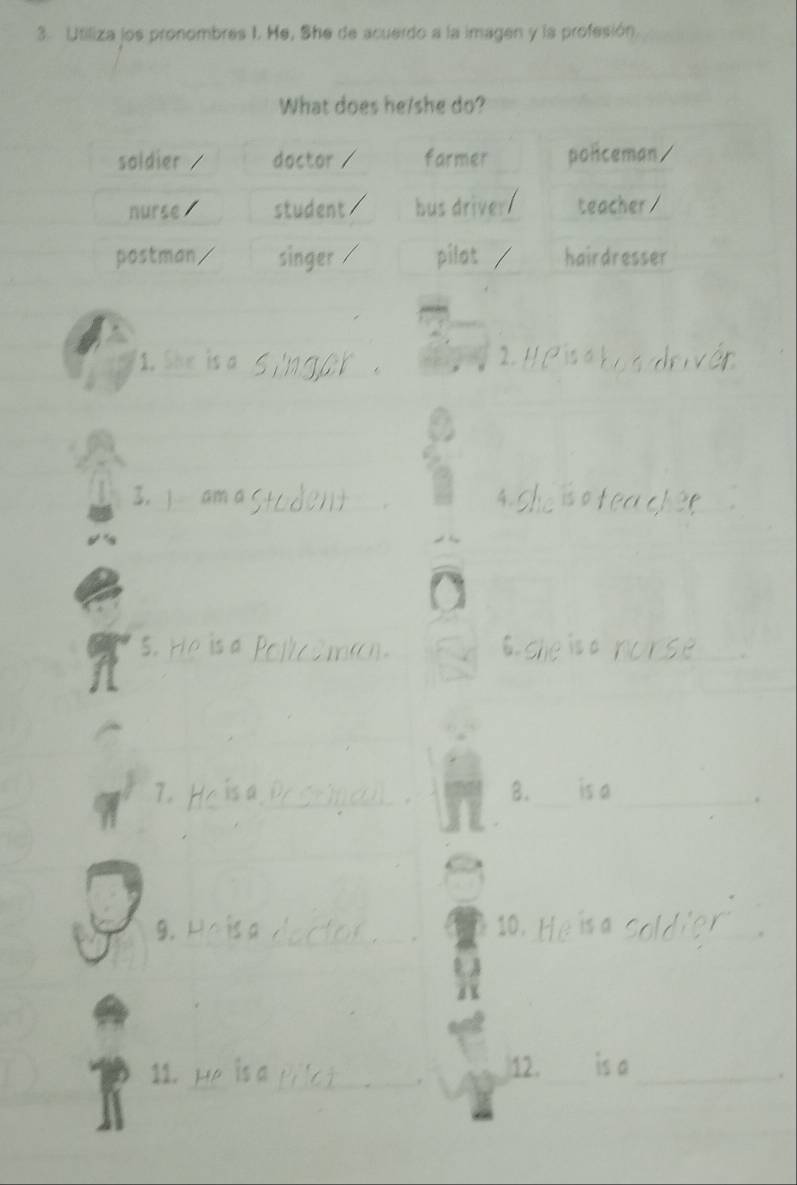 3. Utiliza los pronombres I, He, She de acuerdo a la imagen y la profesión.
What does he/she do?
soldier / doctor / farmer policeman /
nurse / student / bus driver / teacher /
postman / singer / pilot / hairdresser
1. She is a singer.
2. He is a bus driver.
3. I am a student.
4. She is a teacher.
5. He is a Policeman.
6. She is a nurse.
7. He is a Postman.
8. is a .
9. He is a doctor.
10. He is a soldier.
11. He is a pilot.
12. is a .